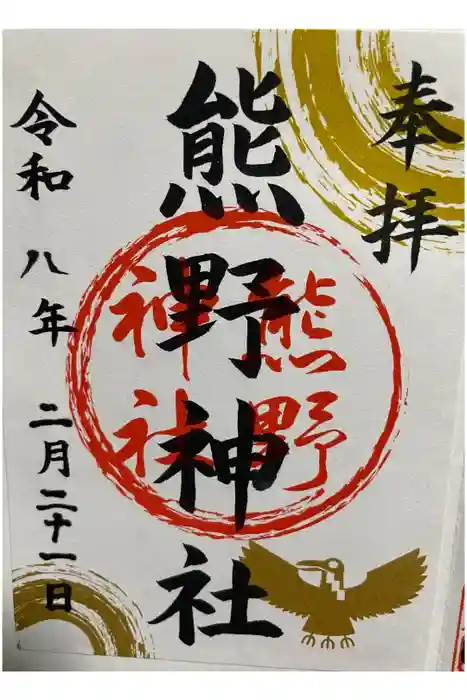 奉拝
熊野神社
熊野
神社
令和 八年 二月二十一日